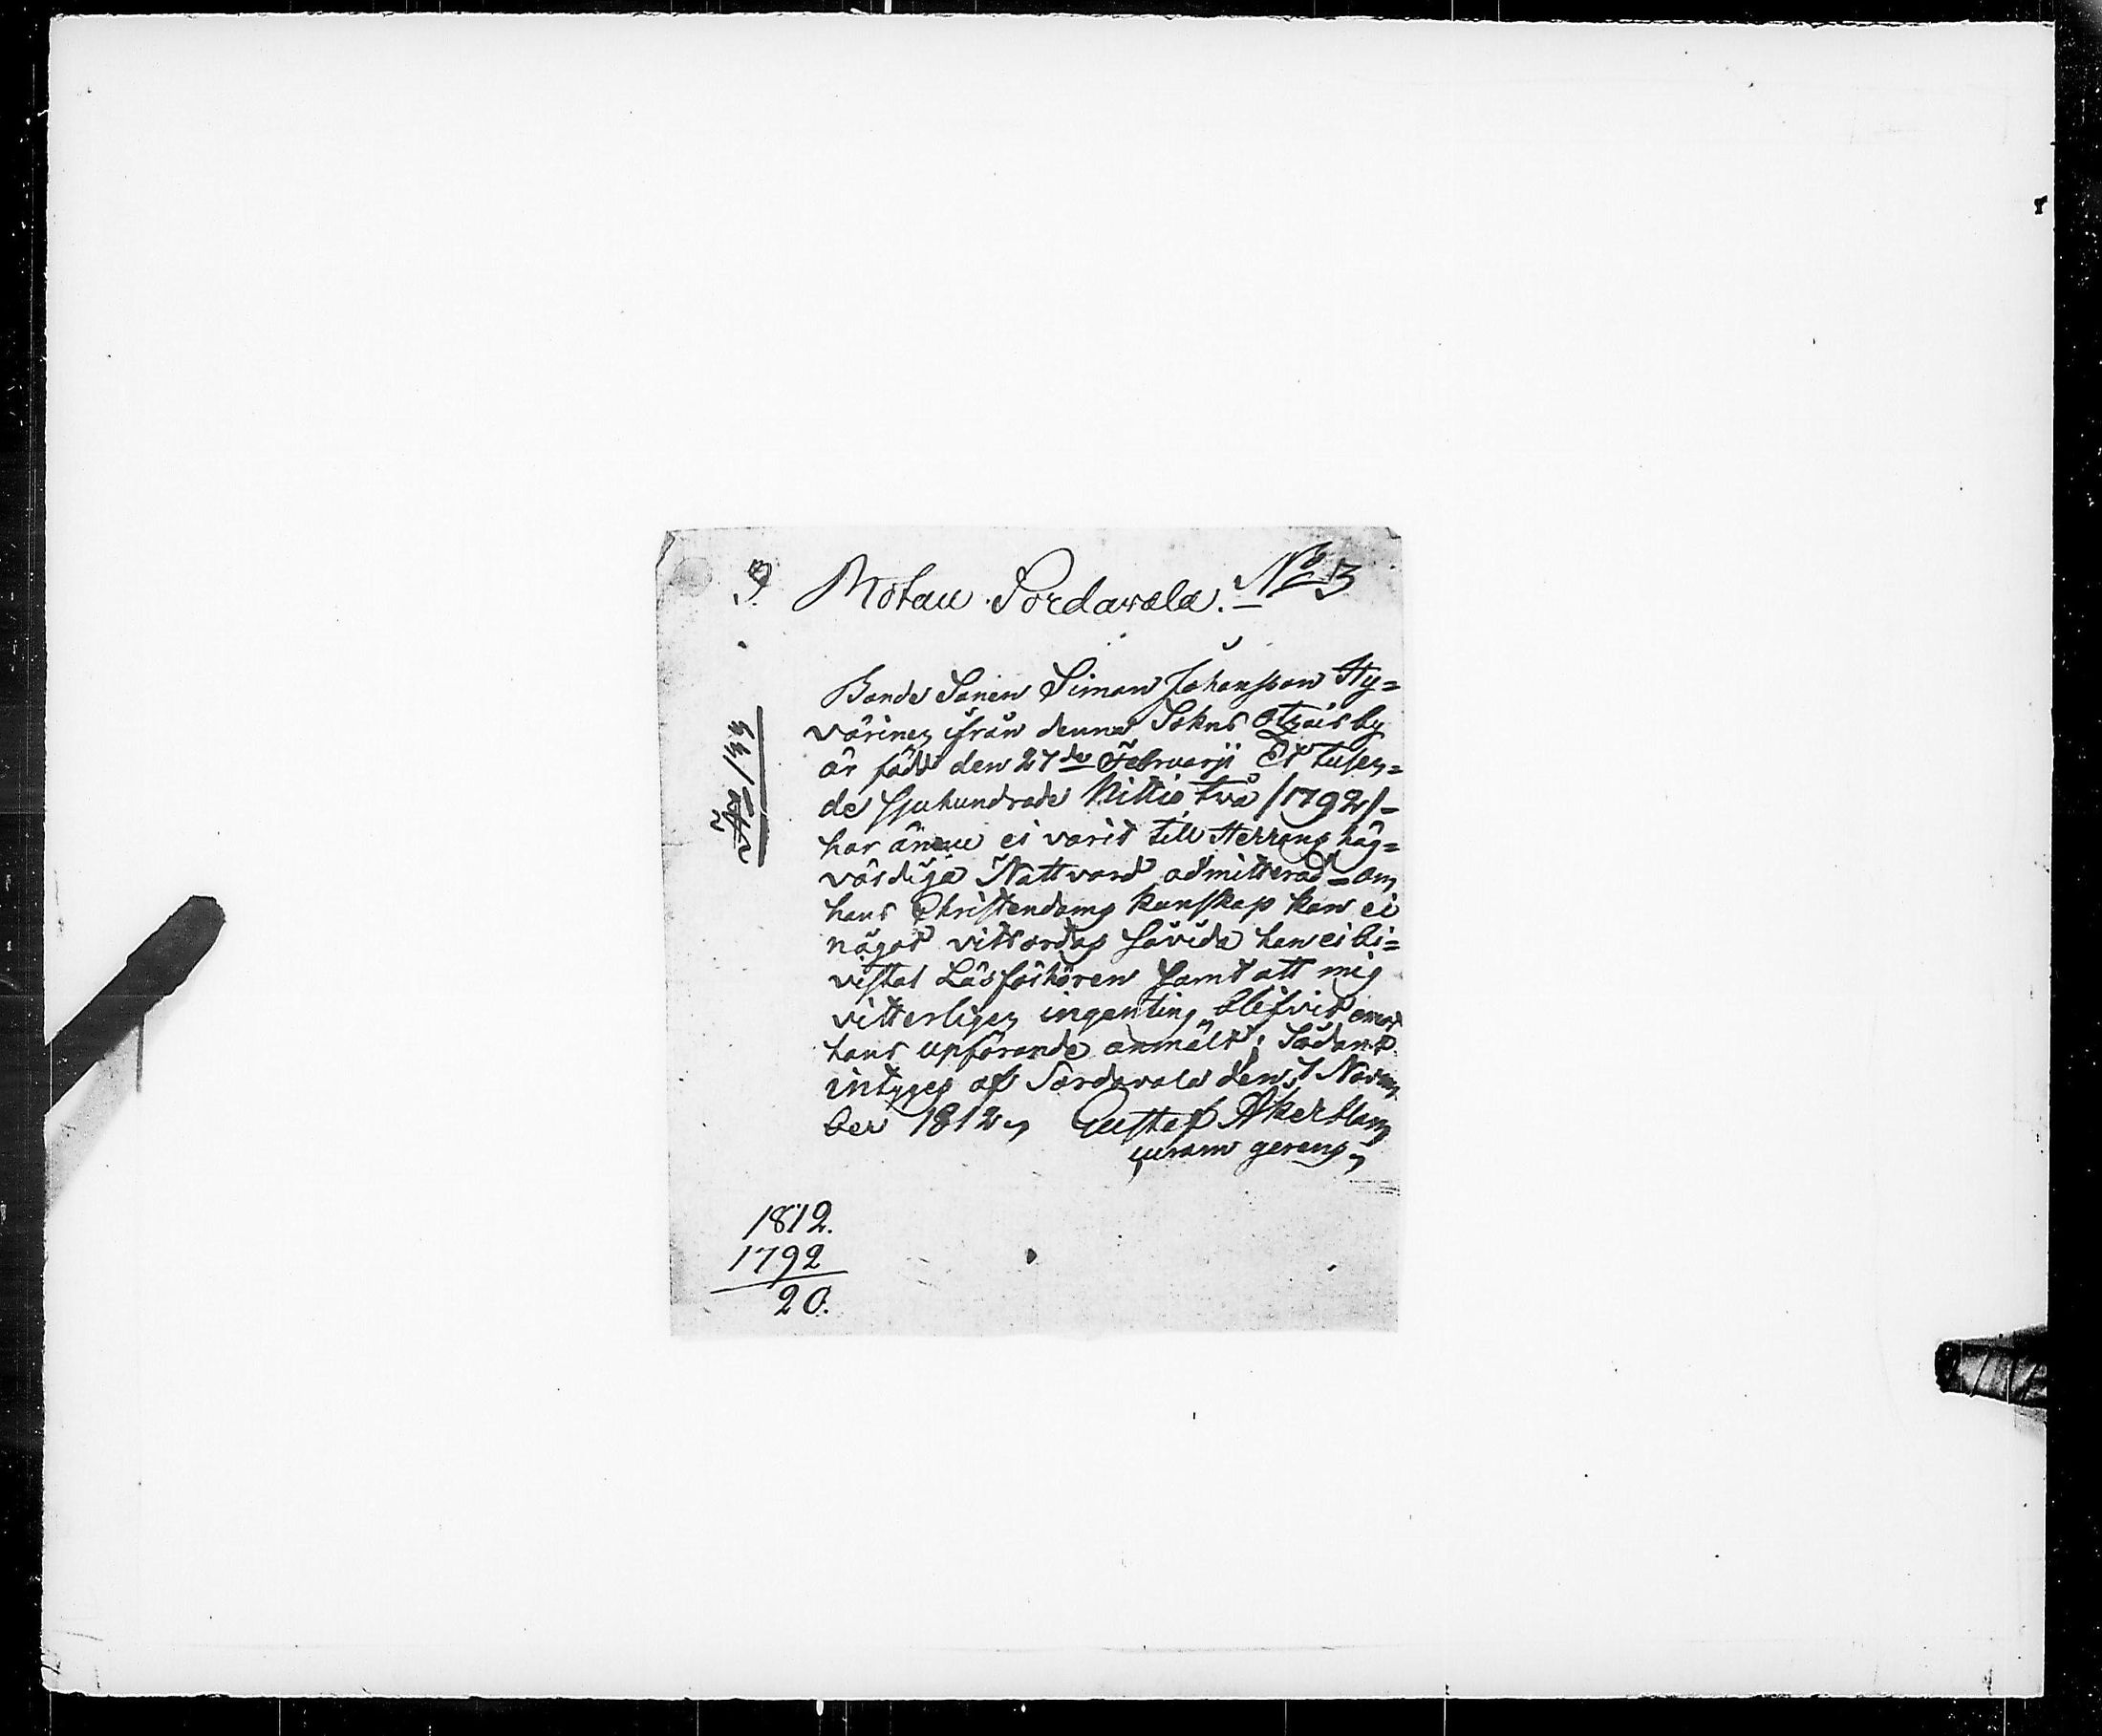 3. Motau Sordavala. No 3
Bonde Sonen Simon Johansson Hy=
värinen ifrån denna Sokns Otrois by
är född den 27de Februarji Et tusen=
de Sjuhundrade Nittio två /1792/-
har ännu ei varit till Herrans hög=
värdiga Nattvard admitterad - om
hans Christendoms kunskap kan ei
något vittsordas såvida han ei bi=
vistat Läsförhören samt att mig
vitterligen ingenting blifvit emot
hans upförande anmält; Sådant
intyges af Sordavala den 7 Novem
ber 1812, Gustaf Åkerblom
curam gerens,
1812.
1792
20.